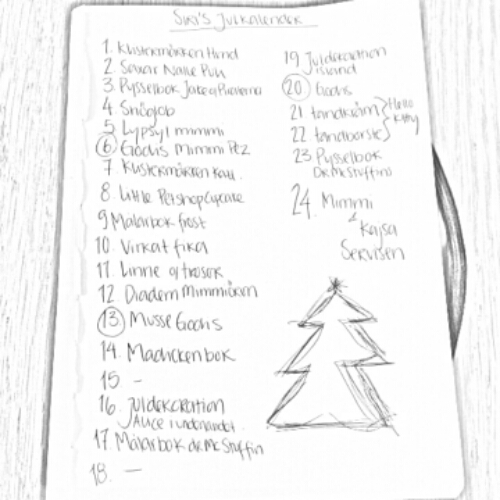 Siri's Julkalender
1. Klistermärken Hund
2. Sevar Nalle Puh
3. Pysselbok Jake o Piraterna
4. Snögob
5. Lypsyl mimmi
6 Godis Mimmi Pez
7. Klistermärken
8. Little Petshop Cupcake
9 Målarbok frost
10. Virkat fika
11. Linne o trosor
12 Diadem Mimmiöron
13 Musse Godis
14. Madicken bok
15. -
16. Juldekoration
Alice i underlandet
17. Målarbok dr Mc Stuffin
18. -
19 Juldekoration
Island
20 Godis
21 tandkräm
22 tandborste
Hello
Kitty
23 Pysselbok
Dr McStuffins
24. Mimmi
&
Kajsa
Servisen